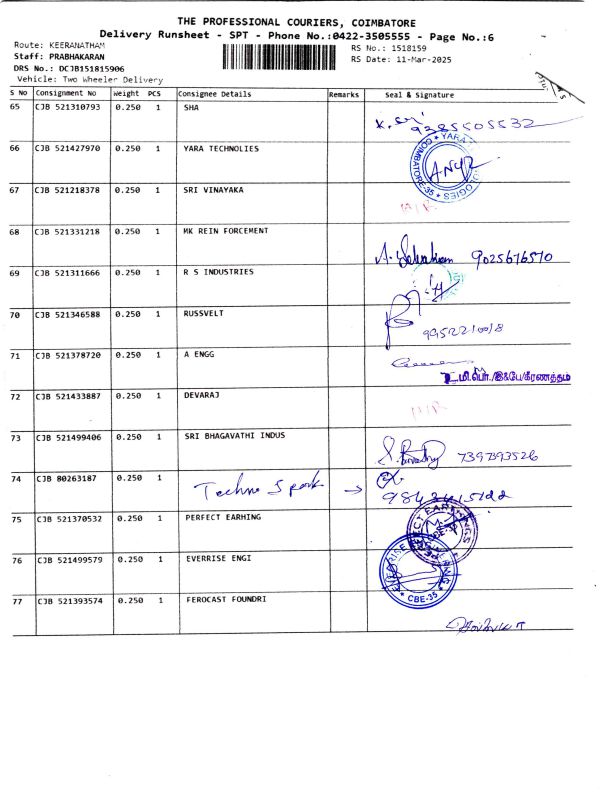 THE PROFESSIONAL COURIERS, COIMBATORE
Delivery Runsheet - SPT - Phone No.:0422-3505555 - Page No.:6
Route: KEERANATHAM
RS No.: 1518159
Staff: PRABHAKARAN
RS Date: 11-Mar-2025
DRS No.: DCJB151815906
Vehicle: Two Wheeler Delivery
S No Consignment No Weight PCS Consignee Details Remarks Seal & Signature
65 CJB 521310793 0.250 1 SHA
9385505532
66 CJB 521427970 0.250 1 YARA TECHNOLIES
YARA COIMBATORE-35
67 CJB 521218378 0.250 1 SRI VINAYAKA
68 CJB 521331218 0.250 1 MK REIN FORCEMENT
9025676570
69 CJB 521311666 0.250 1 R S INDUSTRIES
70 CJB 521346588 0.250 1 RUSSVELT
9952210018
71 CJB 521378720 0.250 1 A ENGG
72 CJB 521433887 0.250 1 DEVARAJ
73 CJB 521499406 0.250 1 SRI BHAGAVATHI INDUS
7397393526
74 CJB 80263187 0.250 1 Techno Spark →
75 CJB 521370532 0.250 1 PERFECT EARHING
CBE-35
76 CJB 521499579 0.250 1 EVERRISE ENGI
CBE-35
77 CJB 521393574 0.250 1 FEROCAST FOUNDRI